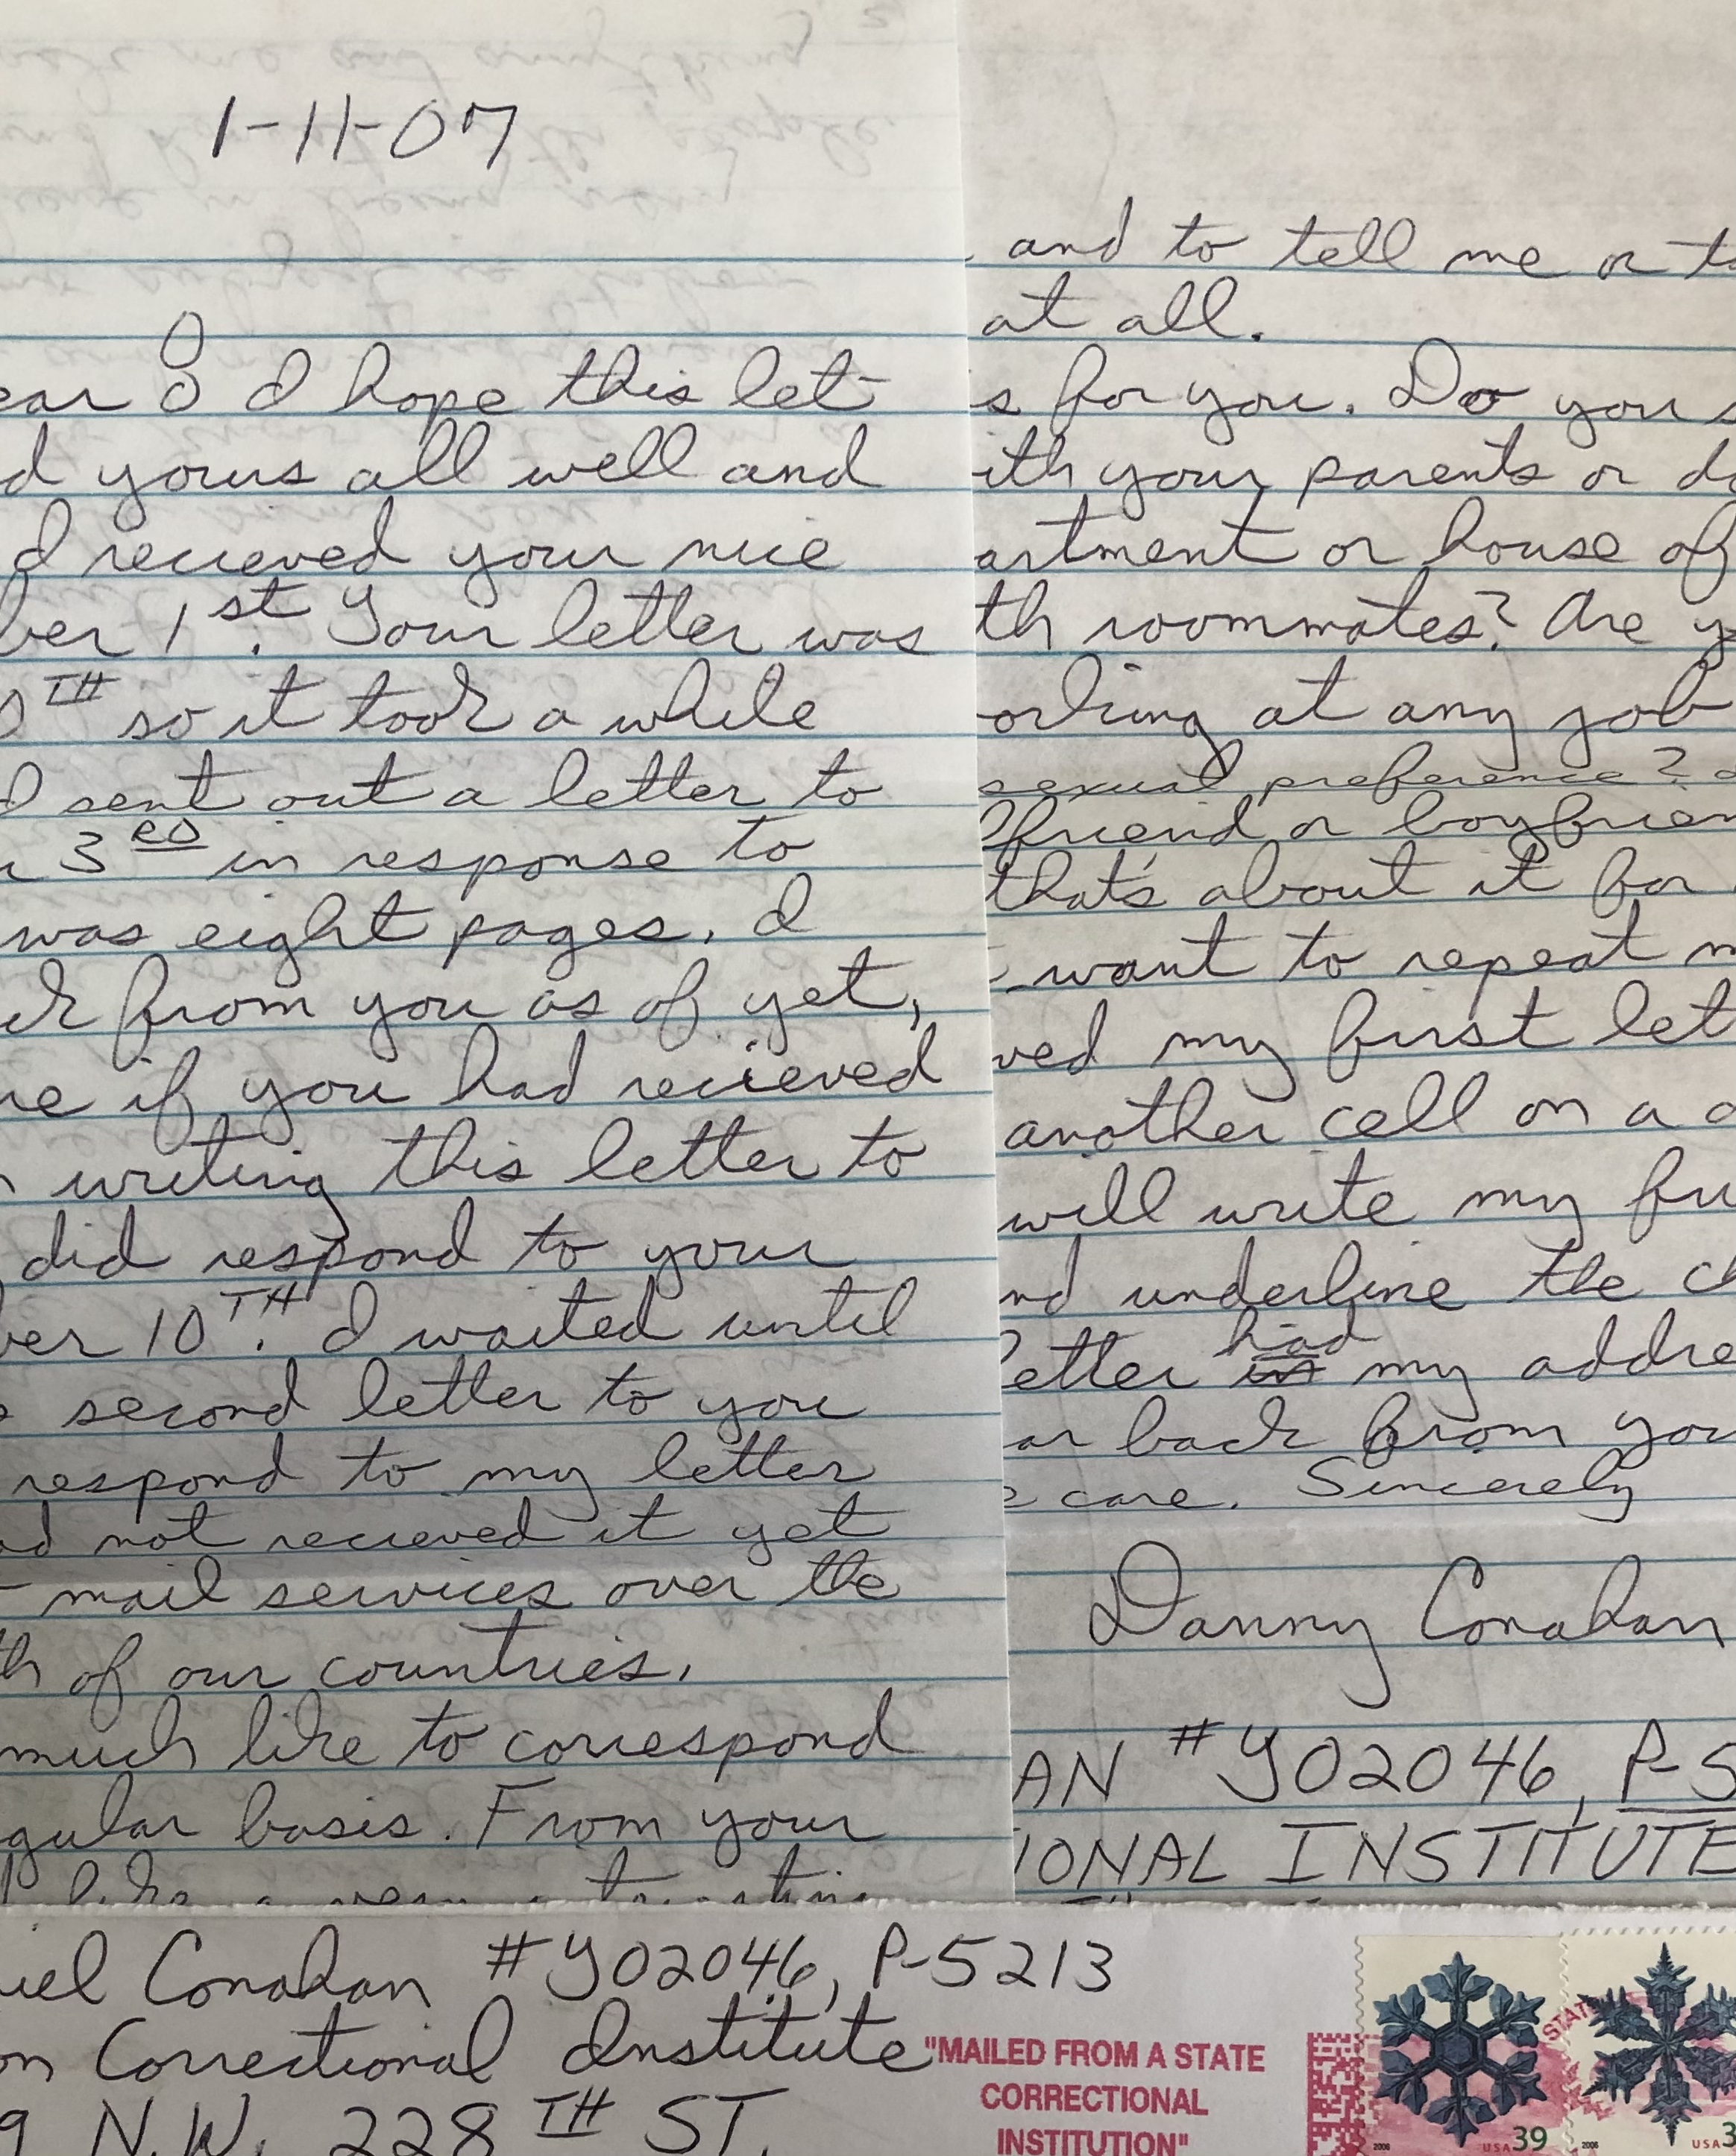 1-11-07
ear I hope this let-
d yours all well and
I recieved your nice
ber 1st. Your letter was
0TH so it took a while
I sent out a letter to
3RD in response to
was eight pages. I
ck from you as of yet,
re if you had recieved
writing this letter to
did respond to your
ber 10TH. I waited until
second letter to you
respond to my letter
ad not recieved it yet
mail services over the
th of our countries.
much like to correspond
gular basis. From your
and to tell me or to
at all.
s for you. Do you s
ith your parents or do
artment or house of
th roommates? Are y
orking at any job
sexual preference?
lfriend or boyfrien
that's about it for
want to repeat m
ved my first let
another cell on a d
will write my fu
nd underline the ch
letter had my addre
ar back from you
e care. Sincerely
Danny Conahan
AN #Y02046, P-5
IONAL INSTITUTE
iel Conahan #Y02046, P-5213
on Correctional Institute
9 N.W. 228TH ST.
"MAILED FROM A STATE
CORRECTIONAL
INSTITUTION"
STATE
2006 USA 39
2006 USA 3